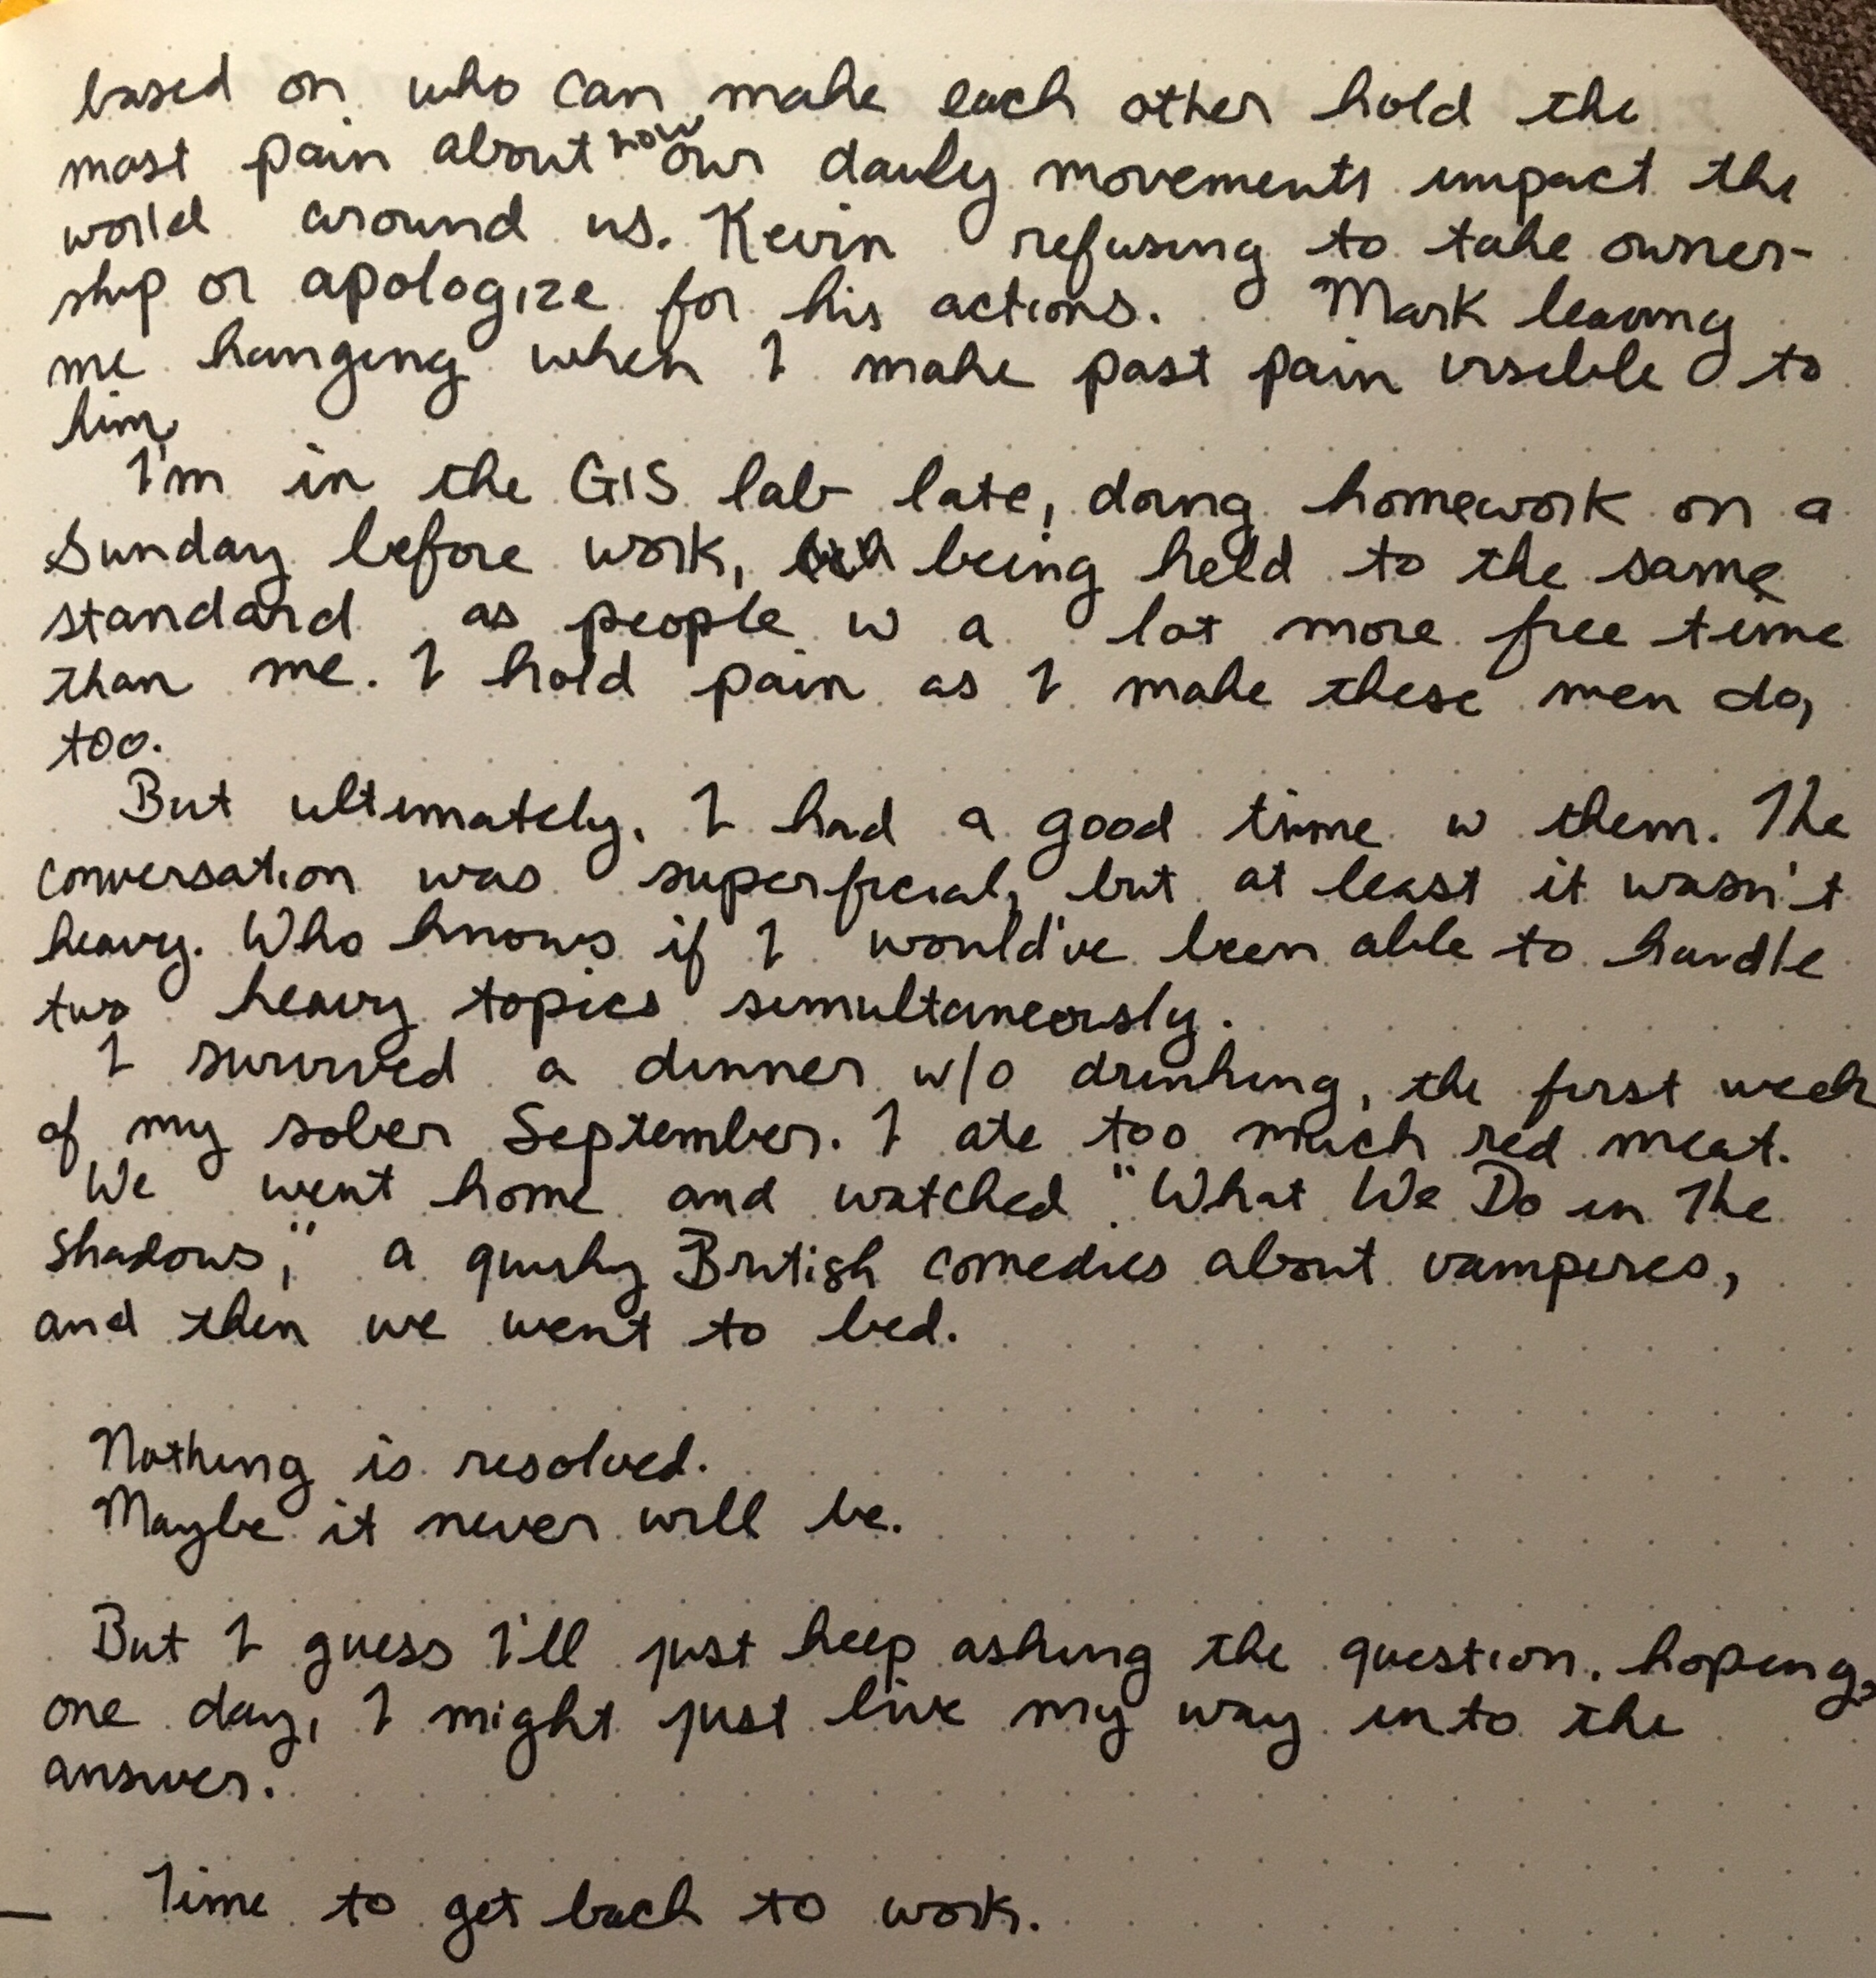 based on who can make each other hold the
most pain about how our daily movements impact the
world around us. Kevin refusing to take owner-
ship or apologize for his actions. Mark leaving
me hanging when I make past pain visible to
him.
I'm in the GIS lab late, doing homework on a
Sunday before work, being held to the same
standard as people w a lot more free time
than me. I hold pain as I make these men do,
too.
But ultimately, I had a good time w them. The
conversation was superficial, but at least it wasn't
heavy. Who knows if I would've been able to handle
two heavy topics simultaneously.
I survived a dinner w/o drinking, the first week
of my sober September. I ate too much red meat.
We went home and watched "What We Do in The
Shadows," a quirky British comedies about vampires,
and then we went to bed.
Nothing is resolved.
Maybe it never will be.
But I guess I'll just keep asking the question, hoping,
one day, I might just live my way into the
answer.
Time to get back to work.